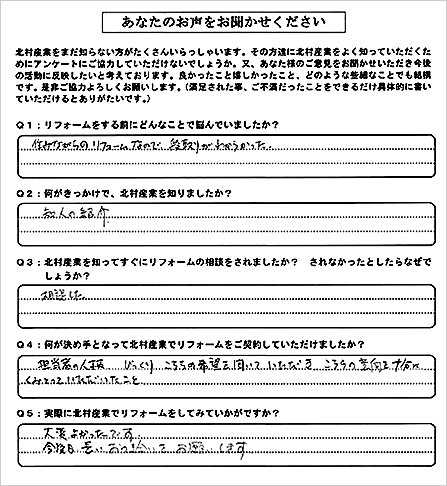 あなたのお声をお聞かせください
北村産業をまだ知らない方がたくさんいらっしゃいます。その方達に北村産業をよく知っていただくた
めにアンケートにご協力していただけないでしょうか。又、あなた様のご意見をお聞かせいただき今後
の活動に反映したいと考えております。良かったこと嬉しかったこと、どのような些細なことでも結構
です。是非ご協力よろしくお願いします。(満足された事、ご不満だったことをできるだけ具体的に書い
ていただけるとありがたいです。)
Q1:リフォームをする前にどんなことで悩んでいましたか?
住みながらのリフォームなので、段取りがわからなかった。
Q2:何がきっかけで、北村産業を知りましたか?
知人の紹介
Q3:北村産業を知ってすぐにリフォームの相談をされましたか? されなかったとしたらなぜで
しょうか?
相談した
Q4:何が決め手となって北村産業でリフォームをご契約していただけましたか?
担当者の人柄 じっくりこちらの希望を聞いていただき こちらの意向を十分に
くみとっていただいたこと
Q5:実際に北村産業でリフォームをしてみていかがですか?
大変よかったです
今後共 長いおつき合いを お願いします